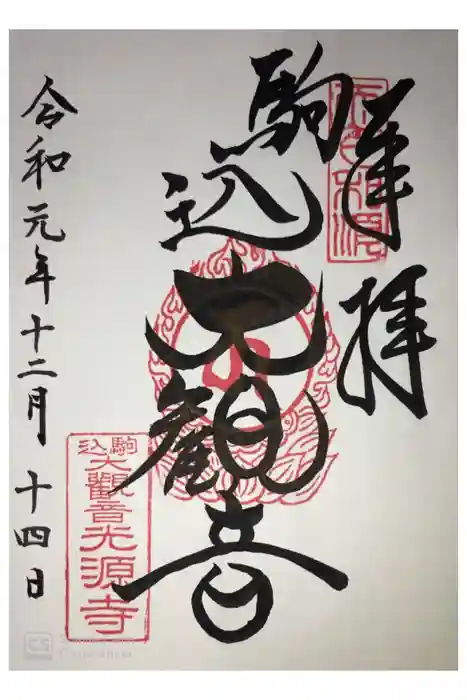 奉拝
駒込大観音
令和元年十二月十四日
駒込
大觀音光源寺
CS